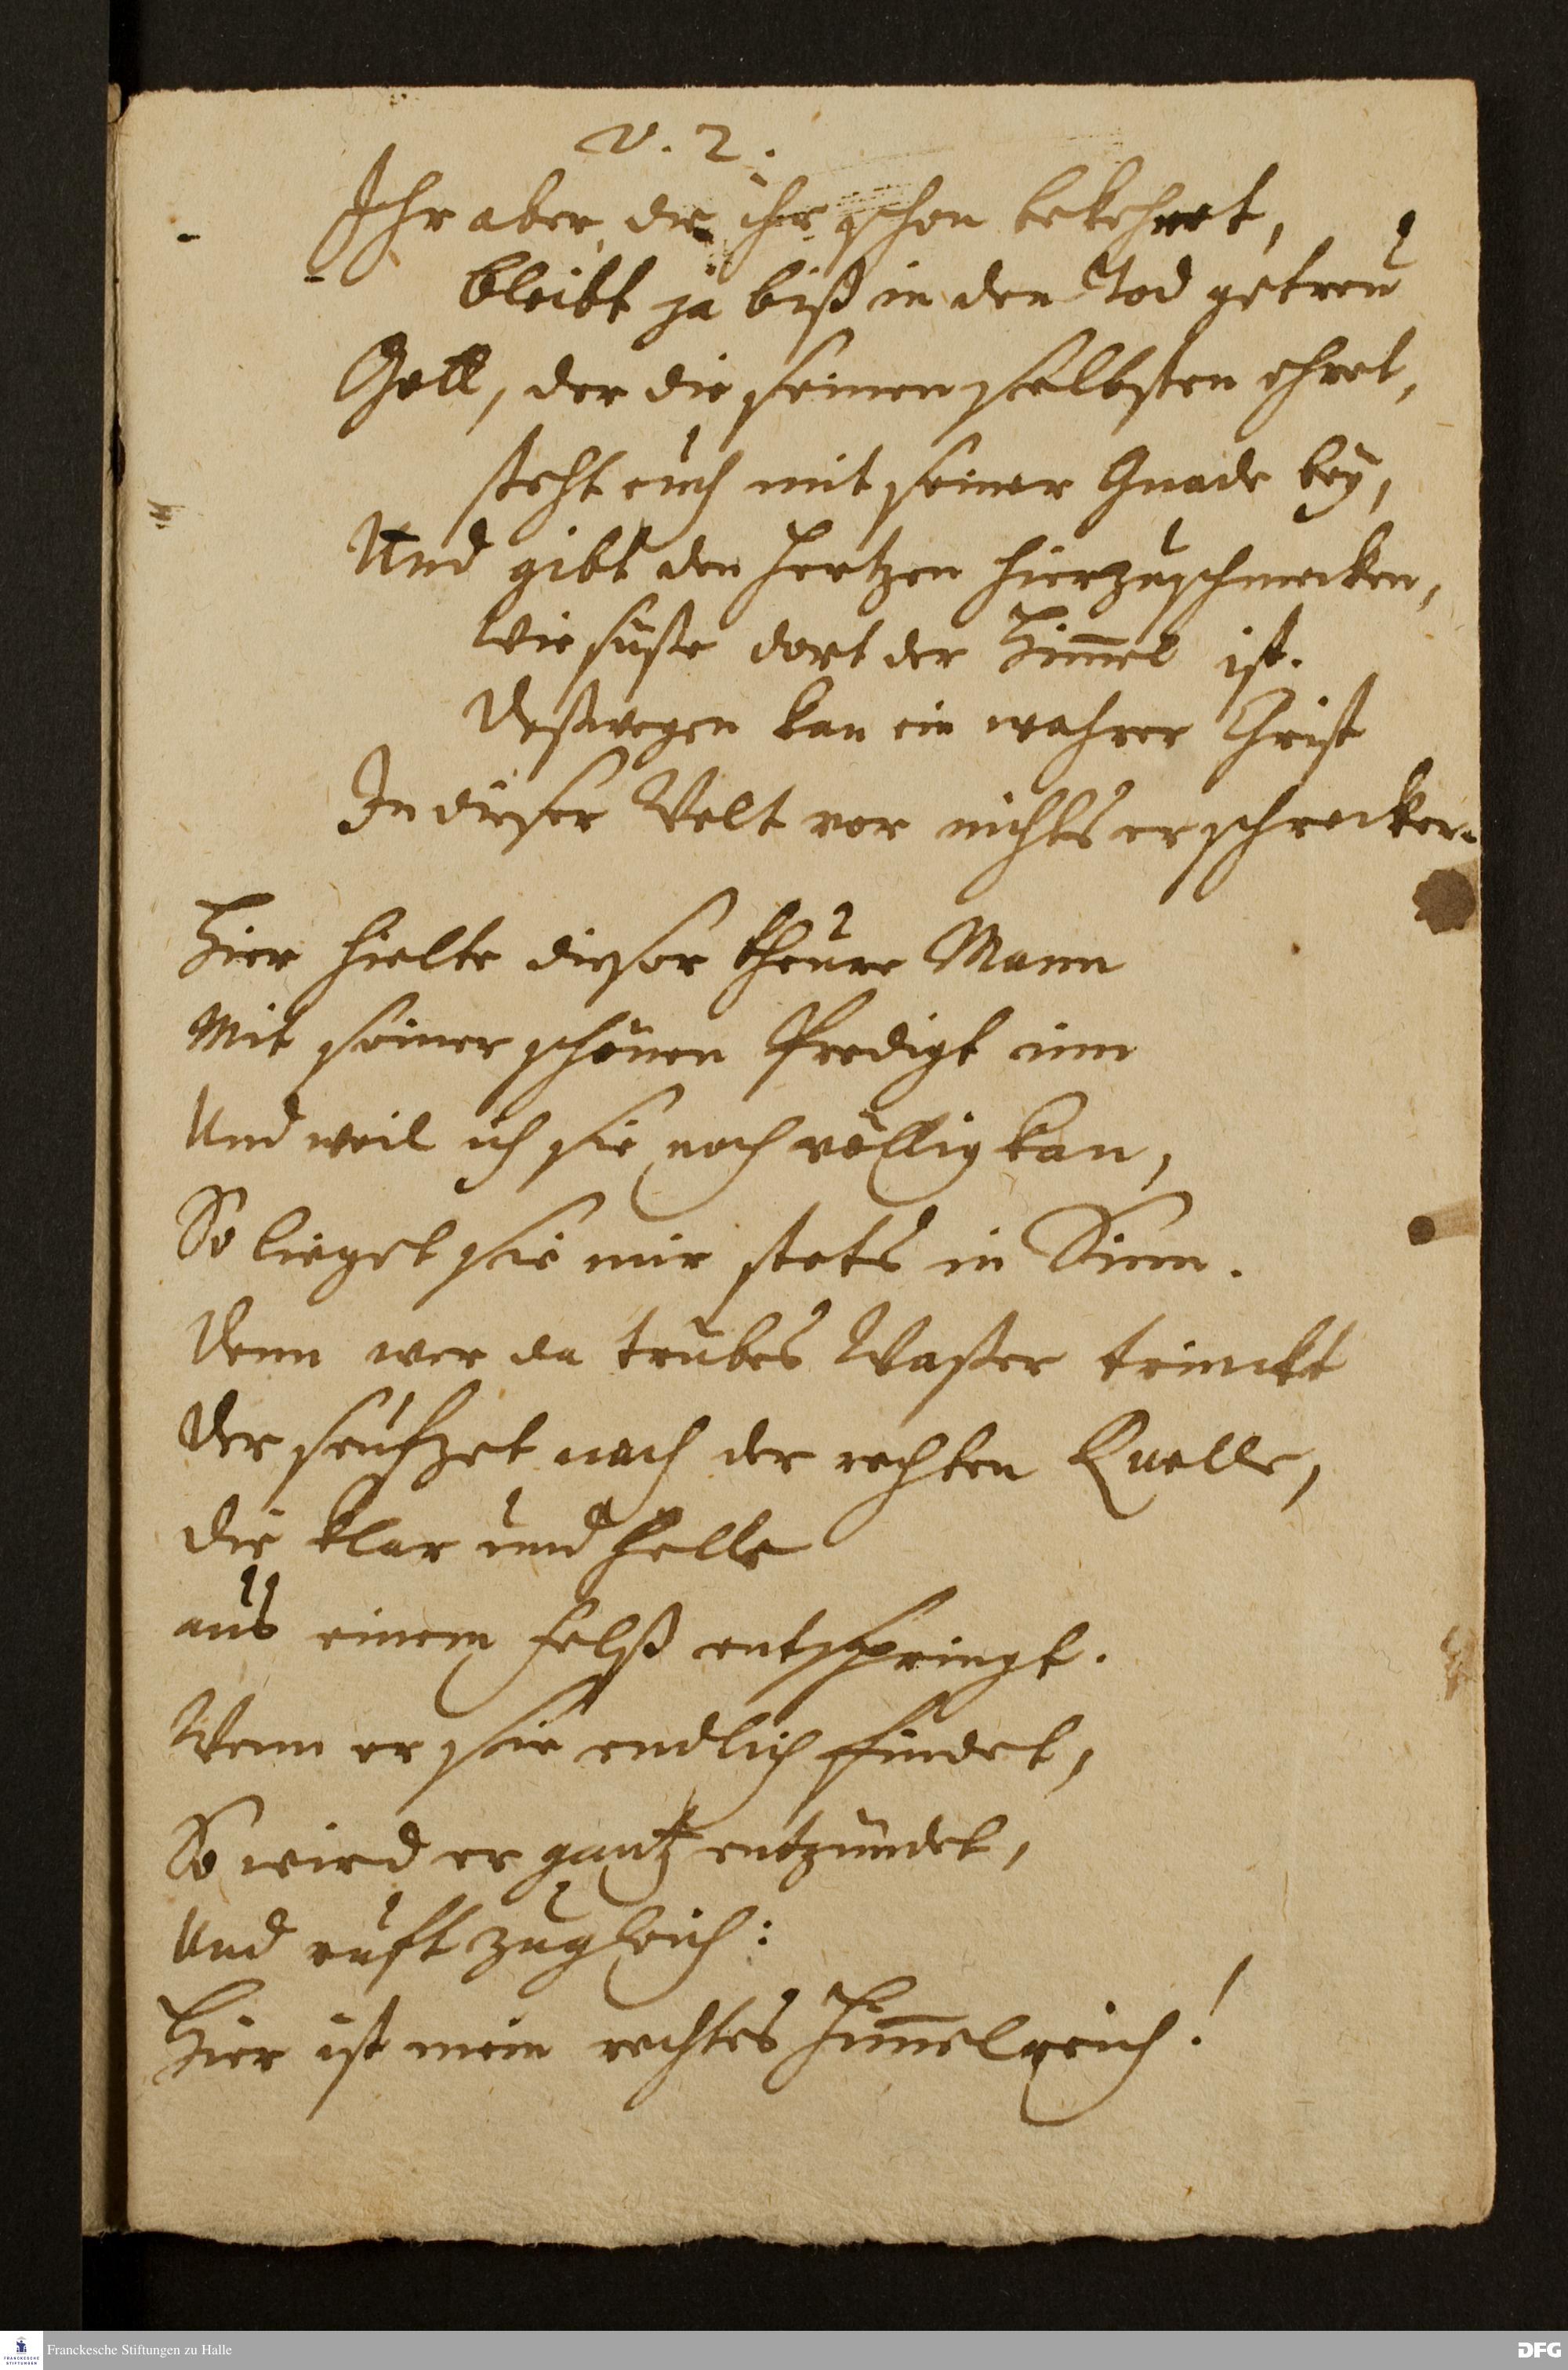 v. 2.
Ihr aber, die ihr schon bekehret,
bleibt ja biß in den Tod getreu
Gott, der die seinen selbsten ehret,
steht euch mit seiner Gnade bey,
Und gibt den Hertzen hier zu schmecken,
Wie süße dort der Him̅el ist.
Deßwegen kan ein wahrer Christ
In dieser Welt vor nichts erschrecken.
Hier hielte dieser theure Mann
Mit seiner schönen Predigt inn
Und weil ich sie noch völlig kan,
So lieget sie mir stets in Sinn.
Denn wer da trübes Waßer trinckt
Der seufzet nach der rechten Quelle,
Die klar und helle
aus einem Felß entspringt.
Wenn er sie endlich findet,
So wird er gantz entzündet,
Und ruft zugleich:
Hier ist mein rechtes Him̅elreich!
Franckesche Stiftungen zu Halle
FRANCKESCHE STIFTUNGEN
DFG